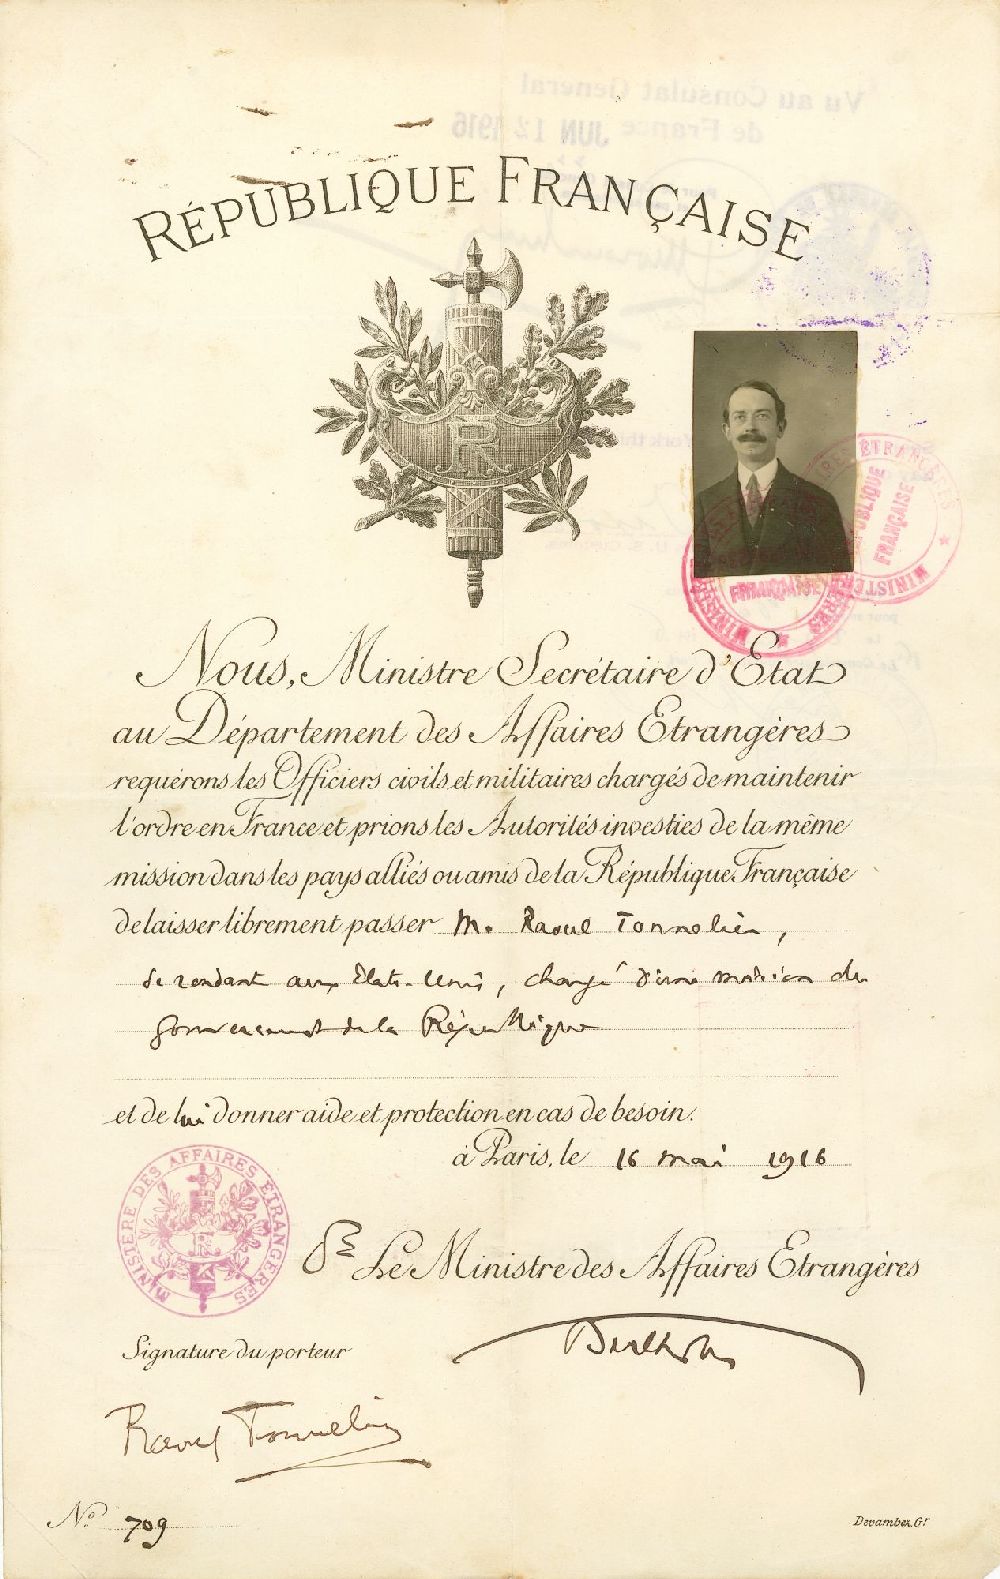 Vu au Consulat General
de France
JUN 12 1916
RÉPUBLIQUE FRANÇAISE
RF
MINISTÈRE DES AFFAIRES ÉTRANGÈRES
RÉPUBLIQUE FRANÇAISE
Nous, Ministre Secrétaire d'Etat
au Département des Affaires Etrangères
requérons les Officiers civils et militaires chargés de maintenir
l'ordre en France et prions les Autorités investies de la même
mission dans les pays alliés ou amis de la République Française
de laisser librement passer M. Raoul Tonnelier,
se rendant aux Etats-Unis, chargé d'une mission du
gouvernement de la République
et de lui donner aide et protection en cas de besoin.
à Paris, le 16 mai 1916
MINISTÈRE DES AFFAIRES ETRANGÈRES
RF
Le Ministre des Affaires Etrangères
Signature du porteur
Nº 709
Devambez, Gr